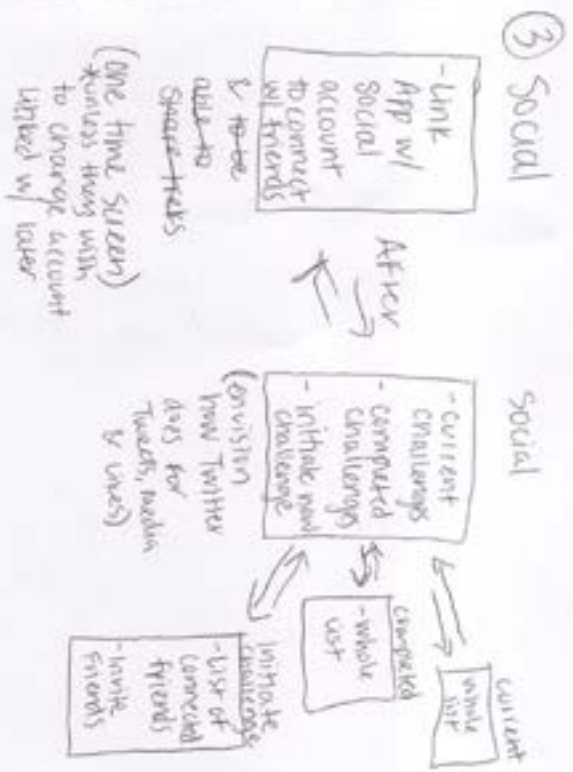 ③ Social
- Link
App w/
social
account
to connect
w/ friends
& to be
able to
(one time screen)
*unless they wish
to change account
linked w/ later
After
Social
- current
challenges
- completed
challenges
- initiate new
challenge
(envision
how Twitter
does for
Tweets, media
& likes)
current
whole
list
completed
- whole
list
initiate
challenge
- List of
connected
friends
- Invite
friends